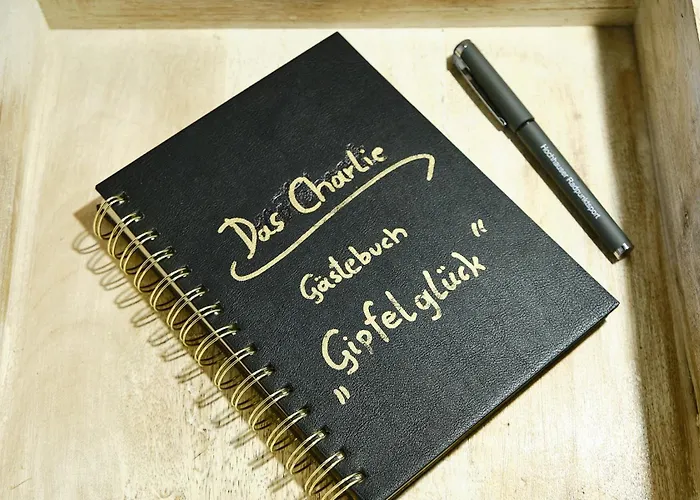 Das Charlie
Gästebuch
„Gipfelglück“
Hochhauser Radpunktsport